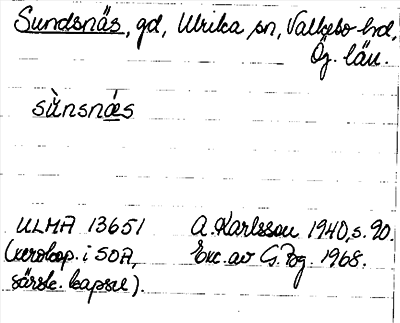 Sundsnäs, gd, Ulrika sn, Valkebo hd,
Ög. län.
sùnsnǽs
ULMA 13651 A. Karlsson 1940, s. 90.
(uerskap. i SOA, Exc. av G. Pog. 1968.
särsk. kapsel).